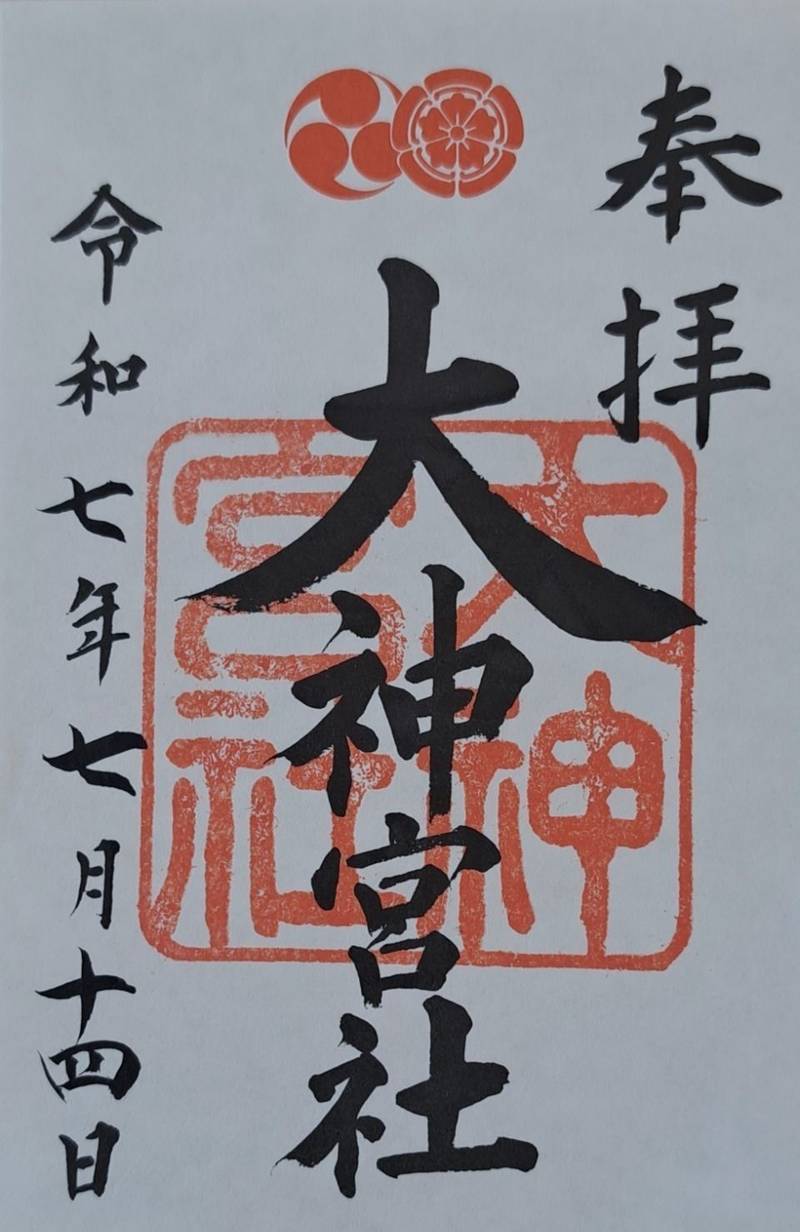 奉拝
大神宮社
大神宮社
令和七年七月十四日